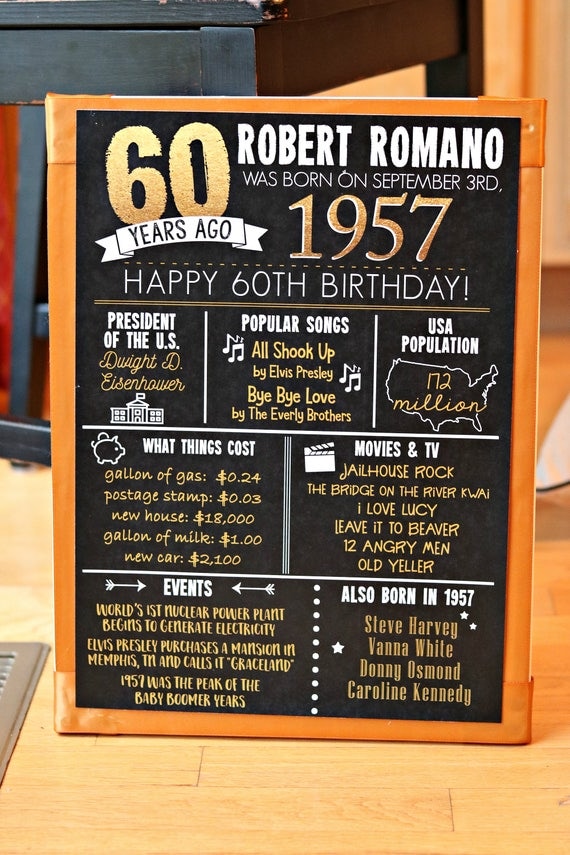 60
YEARS AGO
ROBERT ROMANO
WAS BORN ON SEPTEMBER 3RD,
1957
HAPPY 60TH BIRTHDAY!
PRESIDENT
OF THE U.S.
Dwight D.
Eisenhower
POPULAR SONGS
All Shook Up
by Elvis Presley
Bye Bye Love
by The Everly Brothers
USA
POPULATION
172
million
WHAT THINGS COST
gallon of gas: $0.24
postage stamp: $0.03
new house: $18,000
gallon of milk: $1.00
new car: $2,100
MOVIES & TV
JAILHOUSE ROCK
THE BRIDGE ON THE RIVER KWAI
I LOVE LUCY
LEAVE IT TO BEAVER
12 ANGRY MEN
OLD YELLER
EVENTS
WORLD'S 1ST NUCLEAR POWER PLANT
BEGINS TO GENERATE ELECTRICITY
ELVIS PRESLEY PURCHASES A MANSION IN
MEMPHIS, TN AND CALLS IT "GRACELAND"
1957 WAS THE PEAK OF THE
BABY BOOMER YEARS
ALSO BORN IN 1957
Steve Harvey
Vanna White
Donny Osmond
Caroline Kennedy